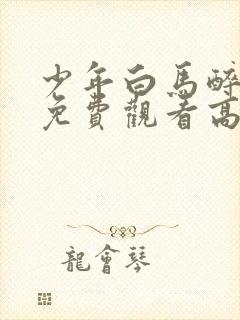 少年白馬醉
免費觀看高
龍會琴